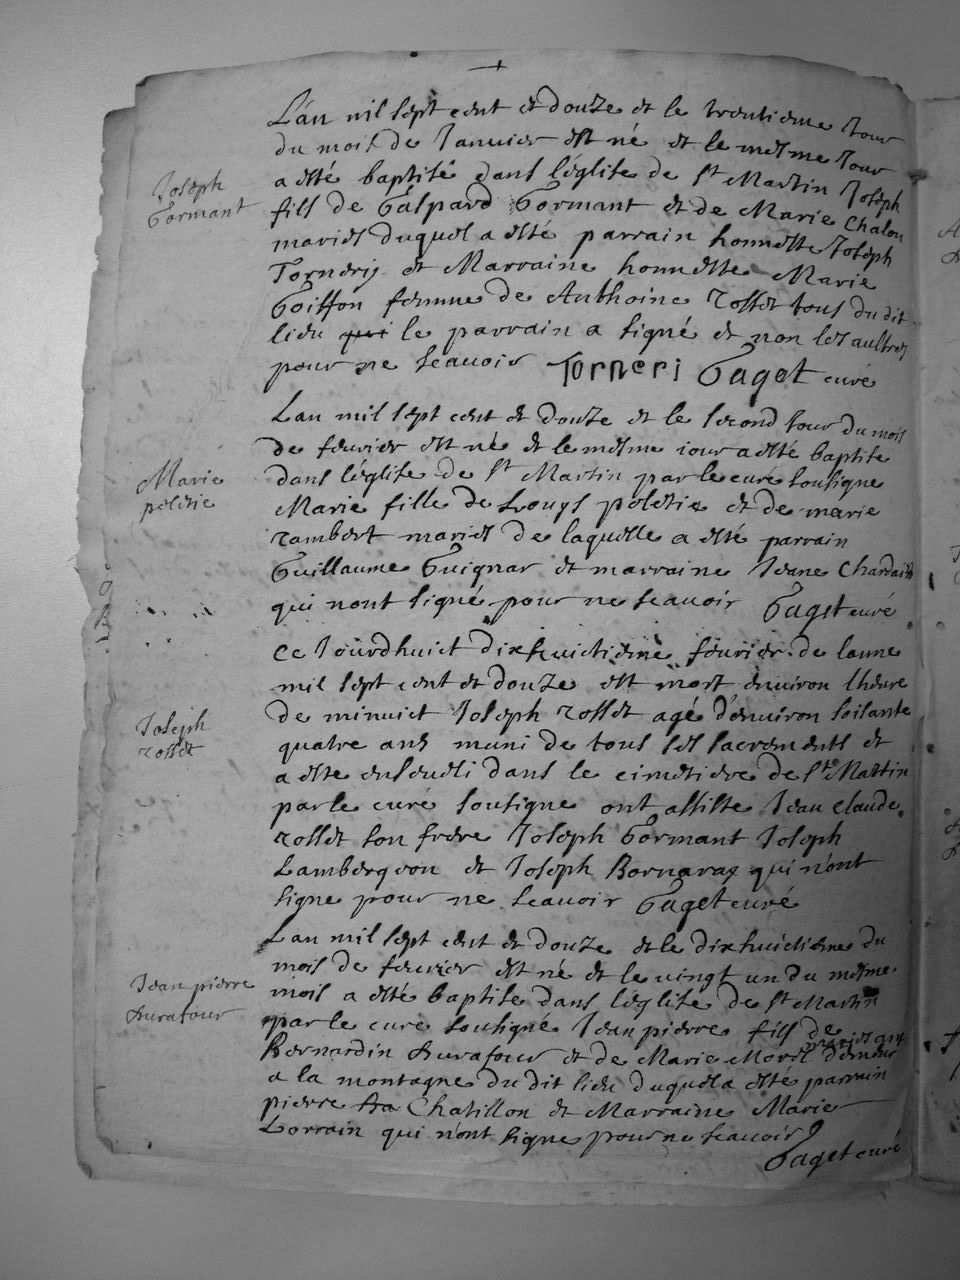 +
L'an mil sept cent et douze et le trentieme jour
du mois de Januier est né et le mesme jour
a esté baptisé dans l'église de St Martin Joseph
Joseph
Gormant
fils de Gaspard Gormant et de Marie Chalon
mariés duquel a esté parrain honneste Joseph
Tornery et Marraine honneste Marie
Goiffon femme de Anthoine rosset tous du dit
lieu le parrain a signé et non les aultres
pour ne scauoir Torneri Gaget curé
Lan mil sept cent et douze et le second jour du mois
de feurier est né et le mesme iour a esté baptise
Marie
poletie
dans l'église de St Martin par le curé sousigne
Marie fille de Louys poletie et de marie
rambert mariés de laquelle a esté parrain
Guillaume Guignar et marraine Jeane Chardain
qui nont signé pour ne scauoir Gaget curé
Ce Jourdhuict dixhuictieme feurier de lanne
mil sept cent et douze est mort enuiron lheure
Joseph
rosset
de minuict Joseph rosset agé d'enuiron soisante
quatre ans muni de tous les sacrements et
a este enseueli dans le cimetiere de St Martin
par le curé sousigne ont assiste Jean Claude
rosset son frere Joseph Gormant Joseph
Lambergeon et Joseph Bornarax qui n'ont
signe pour ne scauoir Gaget curé
Lan mil sept cent et douze et le dixhuictieme du
mois de feurier est né et le vingt un du mesme
Jean pierre
Durafour
mois a esté baptise dans léglise de St Martin
par le curé sousigné Jean pierre fils de
Bernardin Durafour et de Marie Morel mariés
a la montagne du dit lieu duquel a esté parrain
pierre Chatillon et Marraine Marie
Lorrain qui n'ont signe pour ne scauoir
Gaget curé